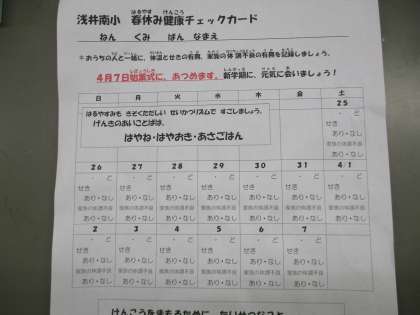 はるやす けんこう
浅井南小 春休み健康チェックカード
ねん くみ ばん なまえ
※おうちの人と一緒に、体温とせきの有無、家族の体調不良の有無を記録しましょう。
4月7日始業式に、あつめます。新学期に、元気に会いましょう!
日 月 火 水 木 金 土
はるやすみも きそくただしい せいかつリズムで すごしましょう。
げんきのあいことばは、
はやね・はやおき・あさごはん
25
. ど
せき
あり・なし
家族の体調不良
あり・なし
26 27 28 29 30 31 4/1
. ど . ど . ど . ど . ど . ど . ど
せき せき せき せき せき せき せき
あり・なし あり・なし あり・なし あり・なし あり・なし あり・なし あり・なし
家族の体調不良 家族の体調不良 家族の体調不良 家族の体調不良 家族の体調不良 家族の体調不良 家族の体調不良
あり・なし あり・なし あり・なし あり・なし あり・なし あり・なし あり・なし
2 3 4 5 6 7
. ど . ど . ど . ど . ど . ど
せき せき せき せき せき せき
あり・なし あり・なし あり・なし あり・なし あり・なし あり・なし
家族の体調不良 家族の体調不良 家族の体調不良 家族の体調不良 家族の体調不良 家族の体調不良
あり・なし あり・なし あり・なし あり・なし あり・なし あり・なし
けんこうをまもるために、たいせつなこと